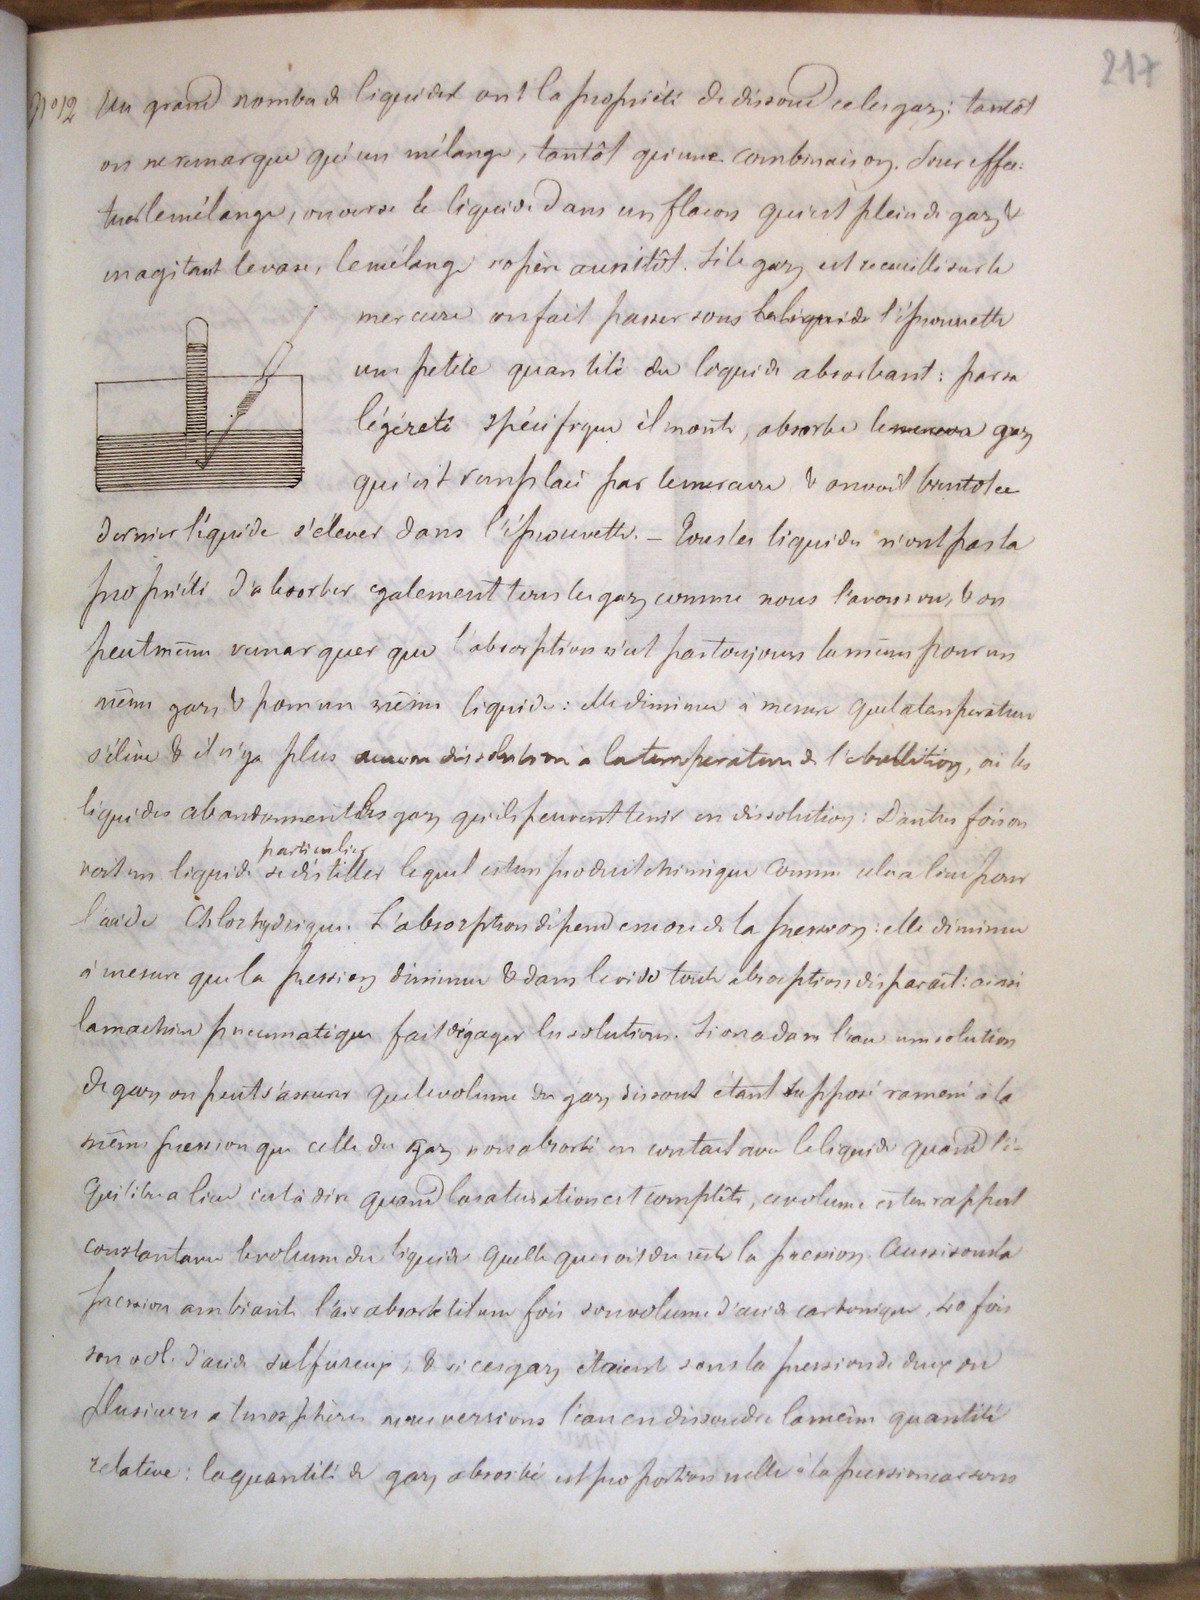 217
N°12 Un grand nombre de liquides ont la propriété de dissoudre les gaz: tantôt
on ne remarque qu'un mélange, tantôt qu'une combinaison. Pour effec-
tuer le mélange, on verse le liquide dans un flacon qui est plein de gaz, &
en agitant le vase, le mélange s'opère aussitôt. Si le gaz est recueilli sur le
mercure on fait passer sous l'éprouvette
une petite quantité du liquide absorbant: par sa
légéreté spécifique il monte, absorbe le gaz
qui est remplacé par le mercure & on voit bientôt ce
dernier liquide s'élever dans l'éprouvette. – Tous les liquides n'ont pas la
propriété d'absorber egalement tous les gaz comme nous l'avons vu, & on
peut même remarquer que l'absorption n'est pas toujours la même pour un
même gaz & pour un même liquide: elle diminue à mesure que la température
s'élève & il n'y a plus aucune dissolution à la température de l'ébullition, où les
liquides abandonnent les gaz qu'ils peuvent tenir en dissolution: D'autres fois on
voit un liquide particulier se distiller lequel est un produit chimique comme cela a lieu pour
l'acide Chlorhydrique. L'absorption dépend encore de la pression: elle diminue
à mesure que la pression diminue & dans le vide toute absorption disparait: ainsi
la machine pneumatique fait dégager les solutions. Si on a dans l'eau une solution
de gaz on peut s'assurer que le volume du gaz dissout étant supposé ramené à la
même pression que celle du gaz non absorbé en contact avec le liquide quand l'é-
quilibre a lieu c'est à dire quand la saturation est complète, ce volume est en rapport
constant avec le volume du liquide quelle que soit du reste la pression. Aussi sous la
pression ambiante l'air absorbe une fois son volume d'acide carbonique, 40 fois
son vol. d'acide sulfureux; & si ces gaz étaient sous la pression de deux ou
plusieurs atmosphères nous verrions l'eau en dissoudre la même quantité
relative: la quantité de gaz absorbé est proportionnelle à la pression car sous